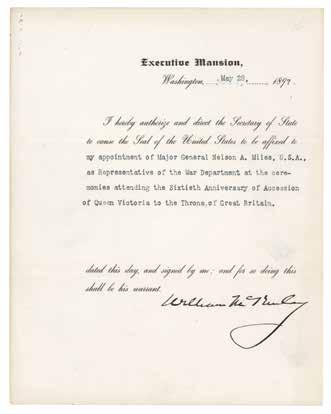 Executive Mansion,
Washington, May 28, 1897.
I hereby authorize and direct the Secretary of State
to cause the Seal of the United States to be affixed to
my appointment of Major General Nelson A. Miles, U.S.A.,
as Representative of the War Department at the cere-
monies attending the Sixtieth Anniversary of Accession
of Queen Victoria to the Throne, of Great Britain.
dated this day, and signed by me; and for so doing this
shall be his warrant.
William McKinley